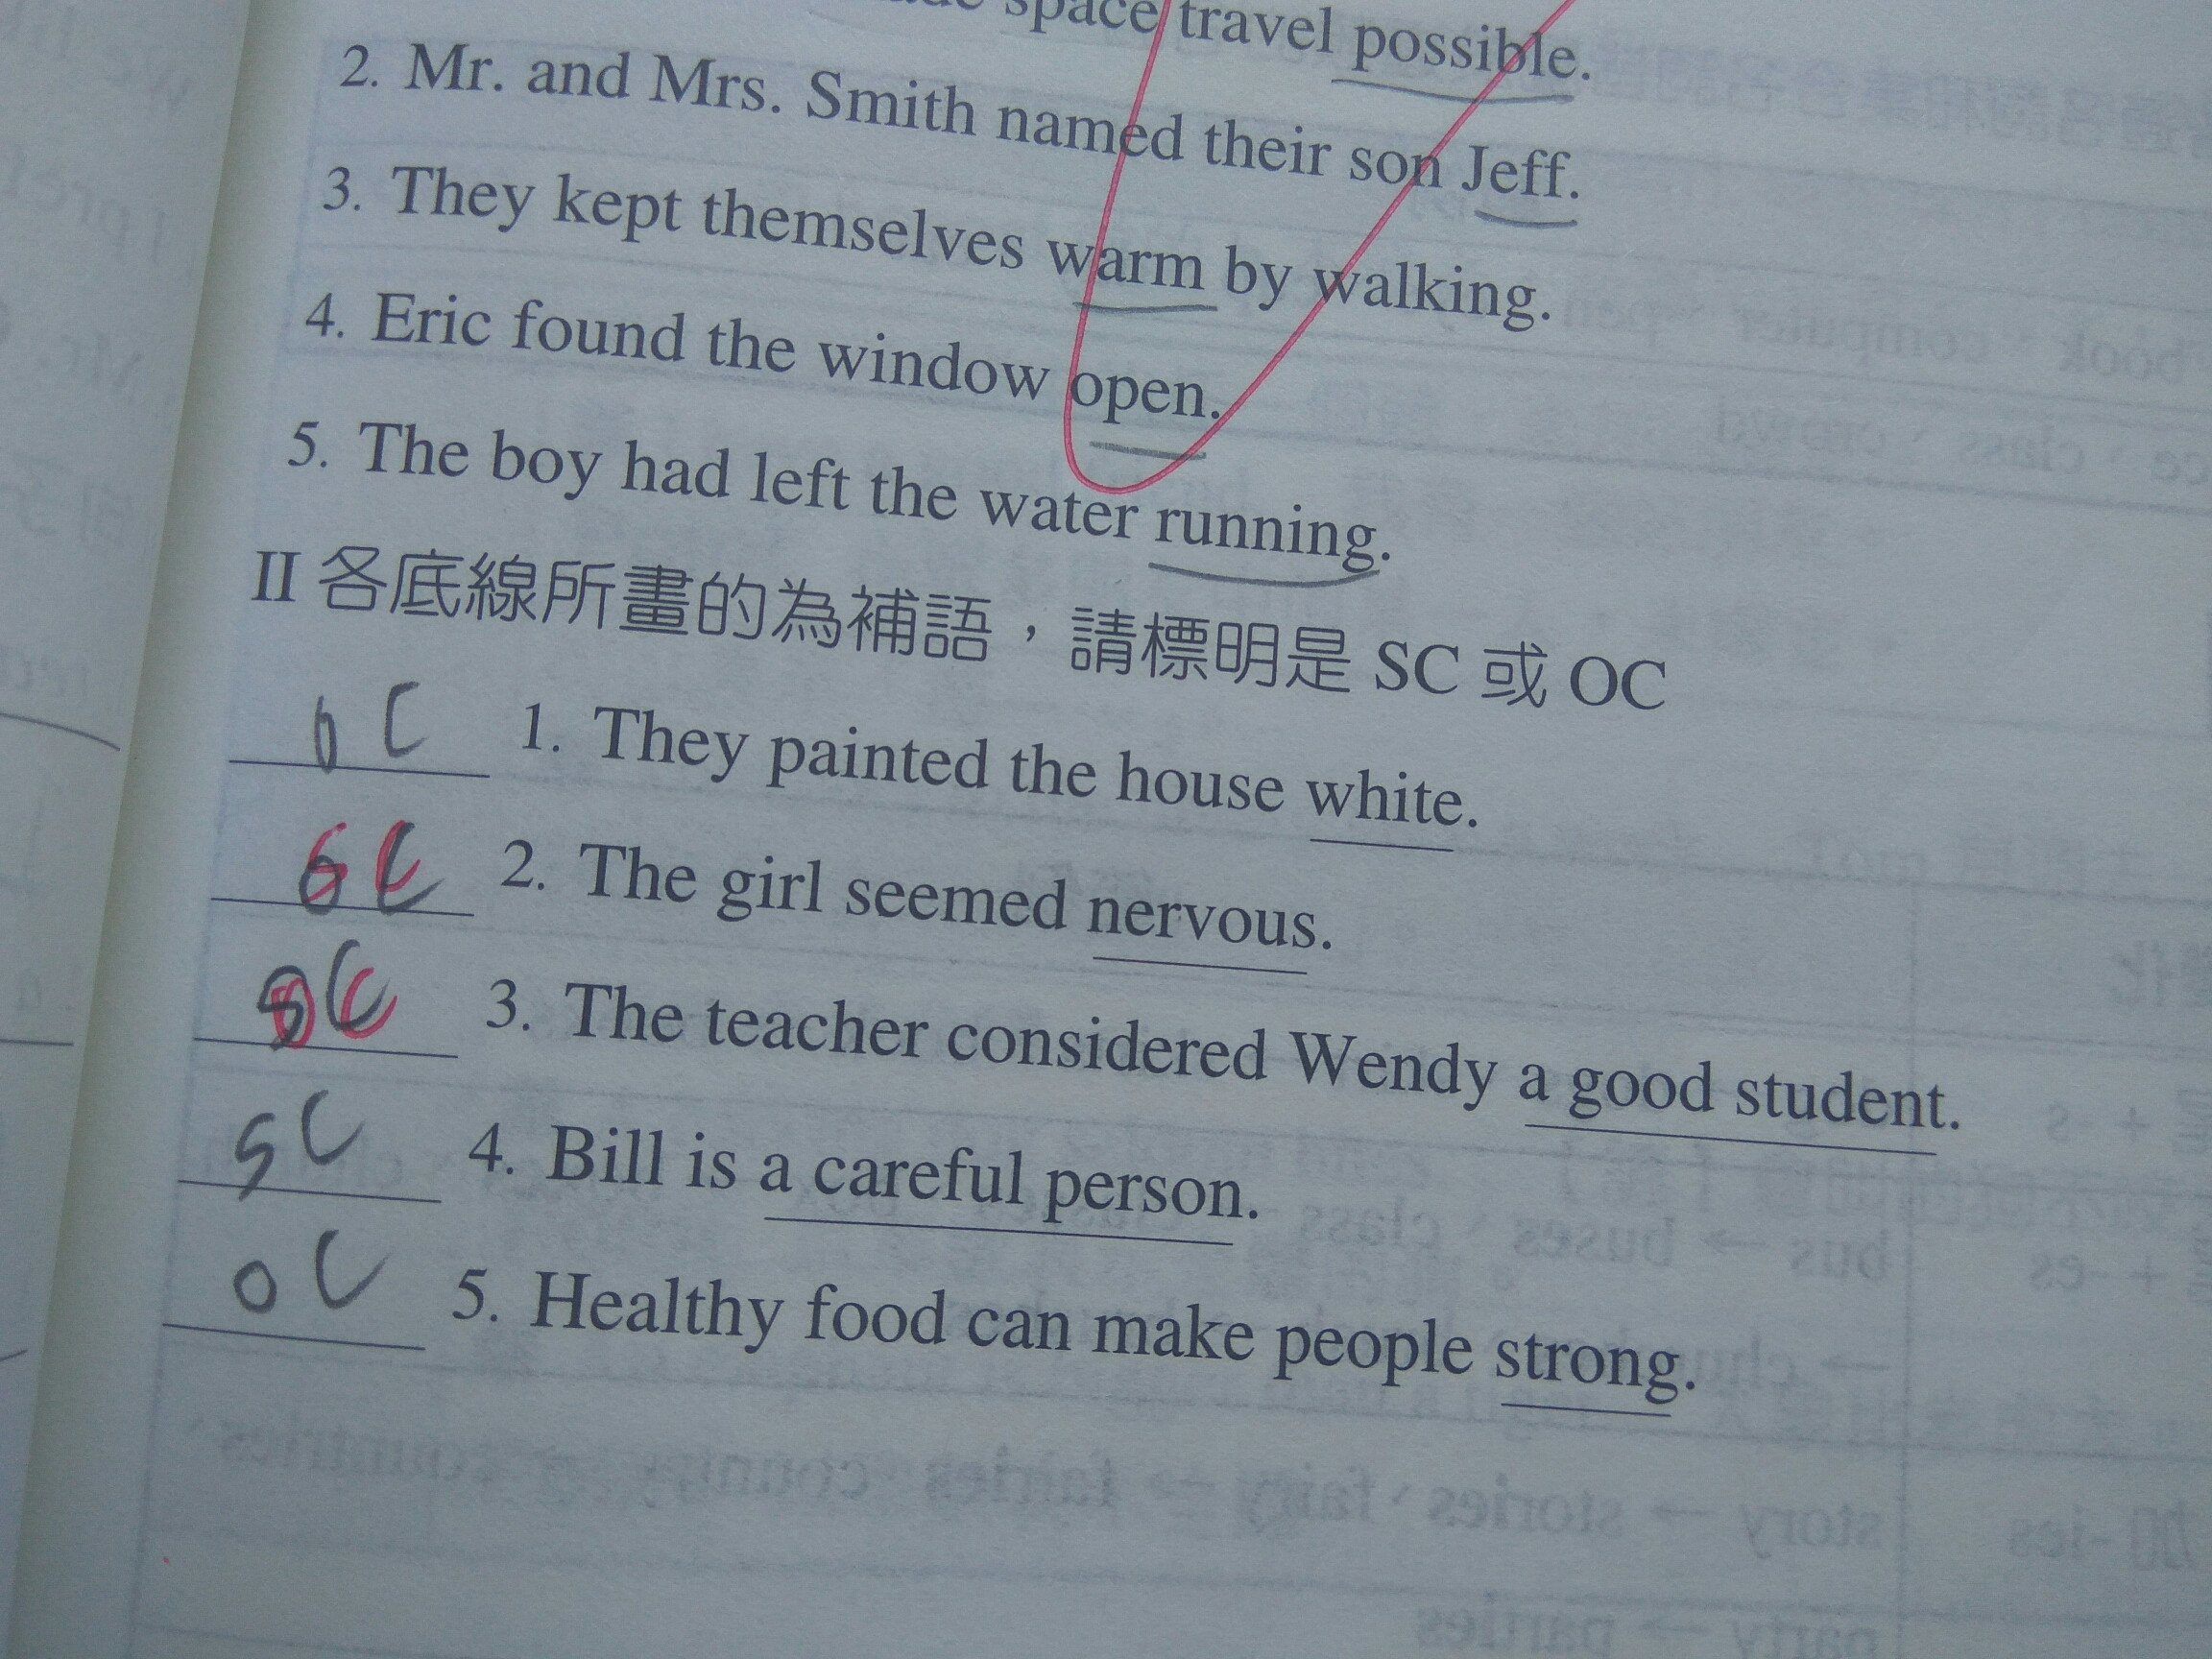 space travel possible.
2. Mr. and Mrs. Smith named their son Jeff.
3. They kept themselves warm by walking.
4. Eric found the window open.
5. The boy had left the water running.
II 各底線所畫的為補語，請標明是 SC 或 OC
OC 1. They painted the house white.
2. The girl seemed nervous.
3. The teacher considered Wendy a good student.
SC 4. Bill is a careful person.
OC 5. Healthy food can make people strong.